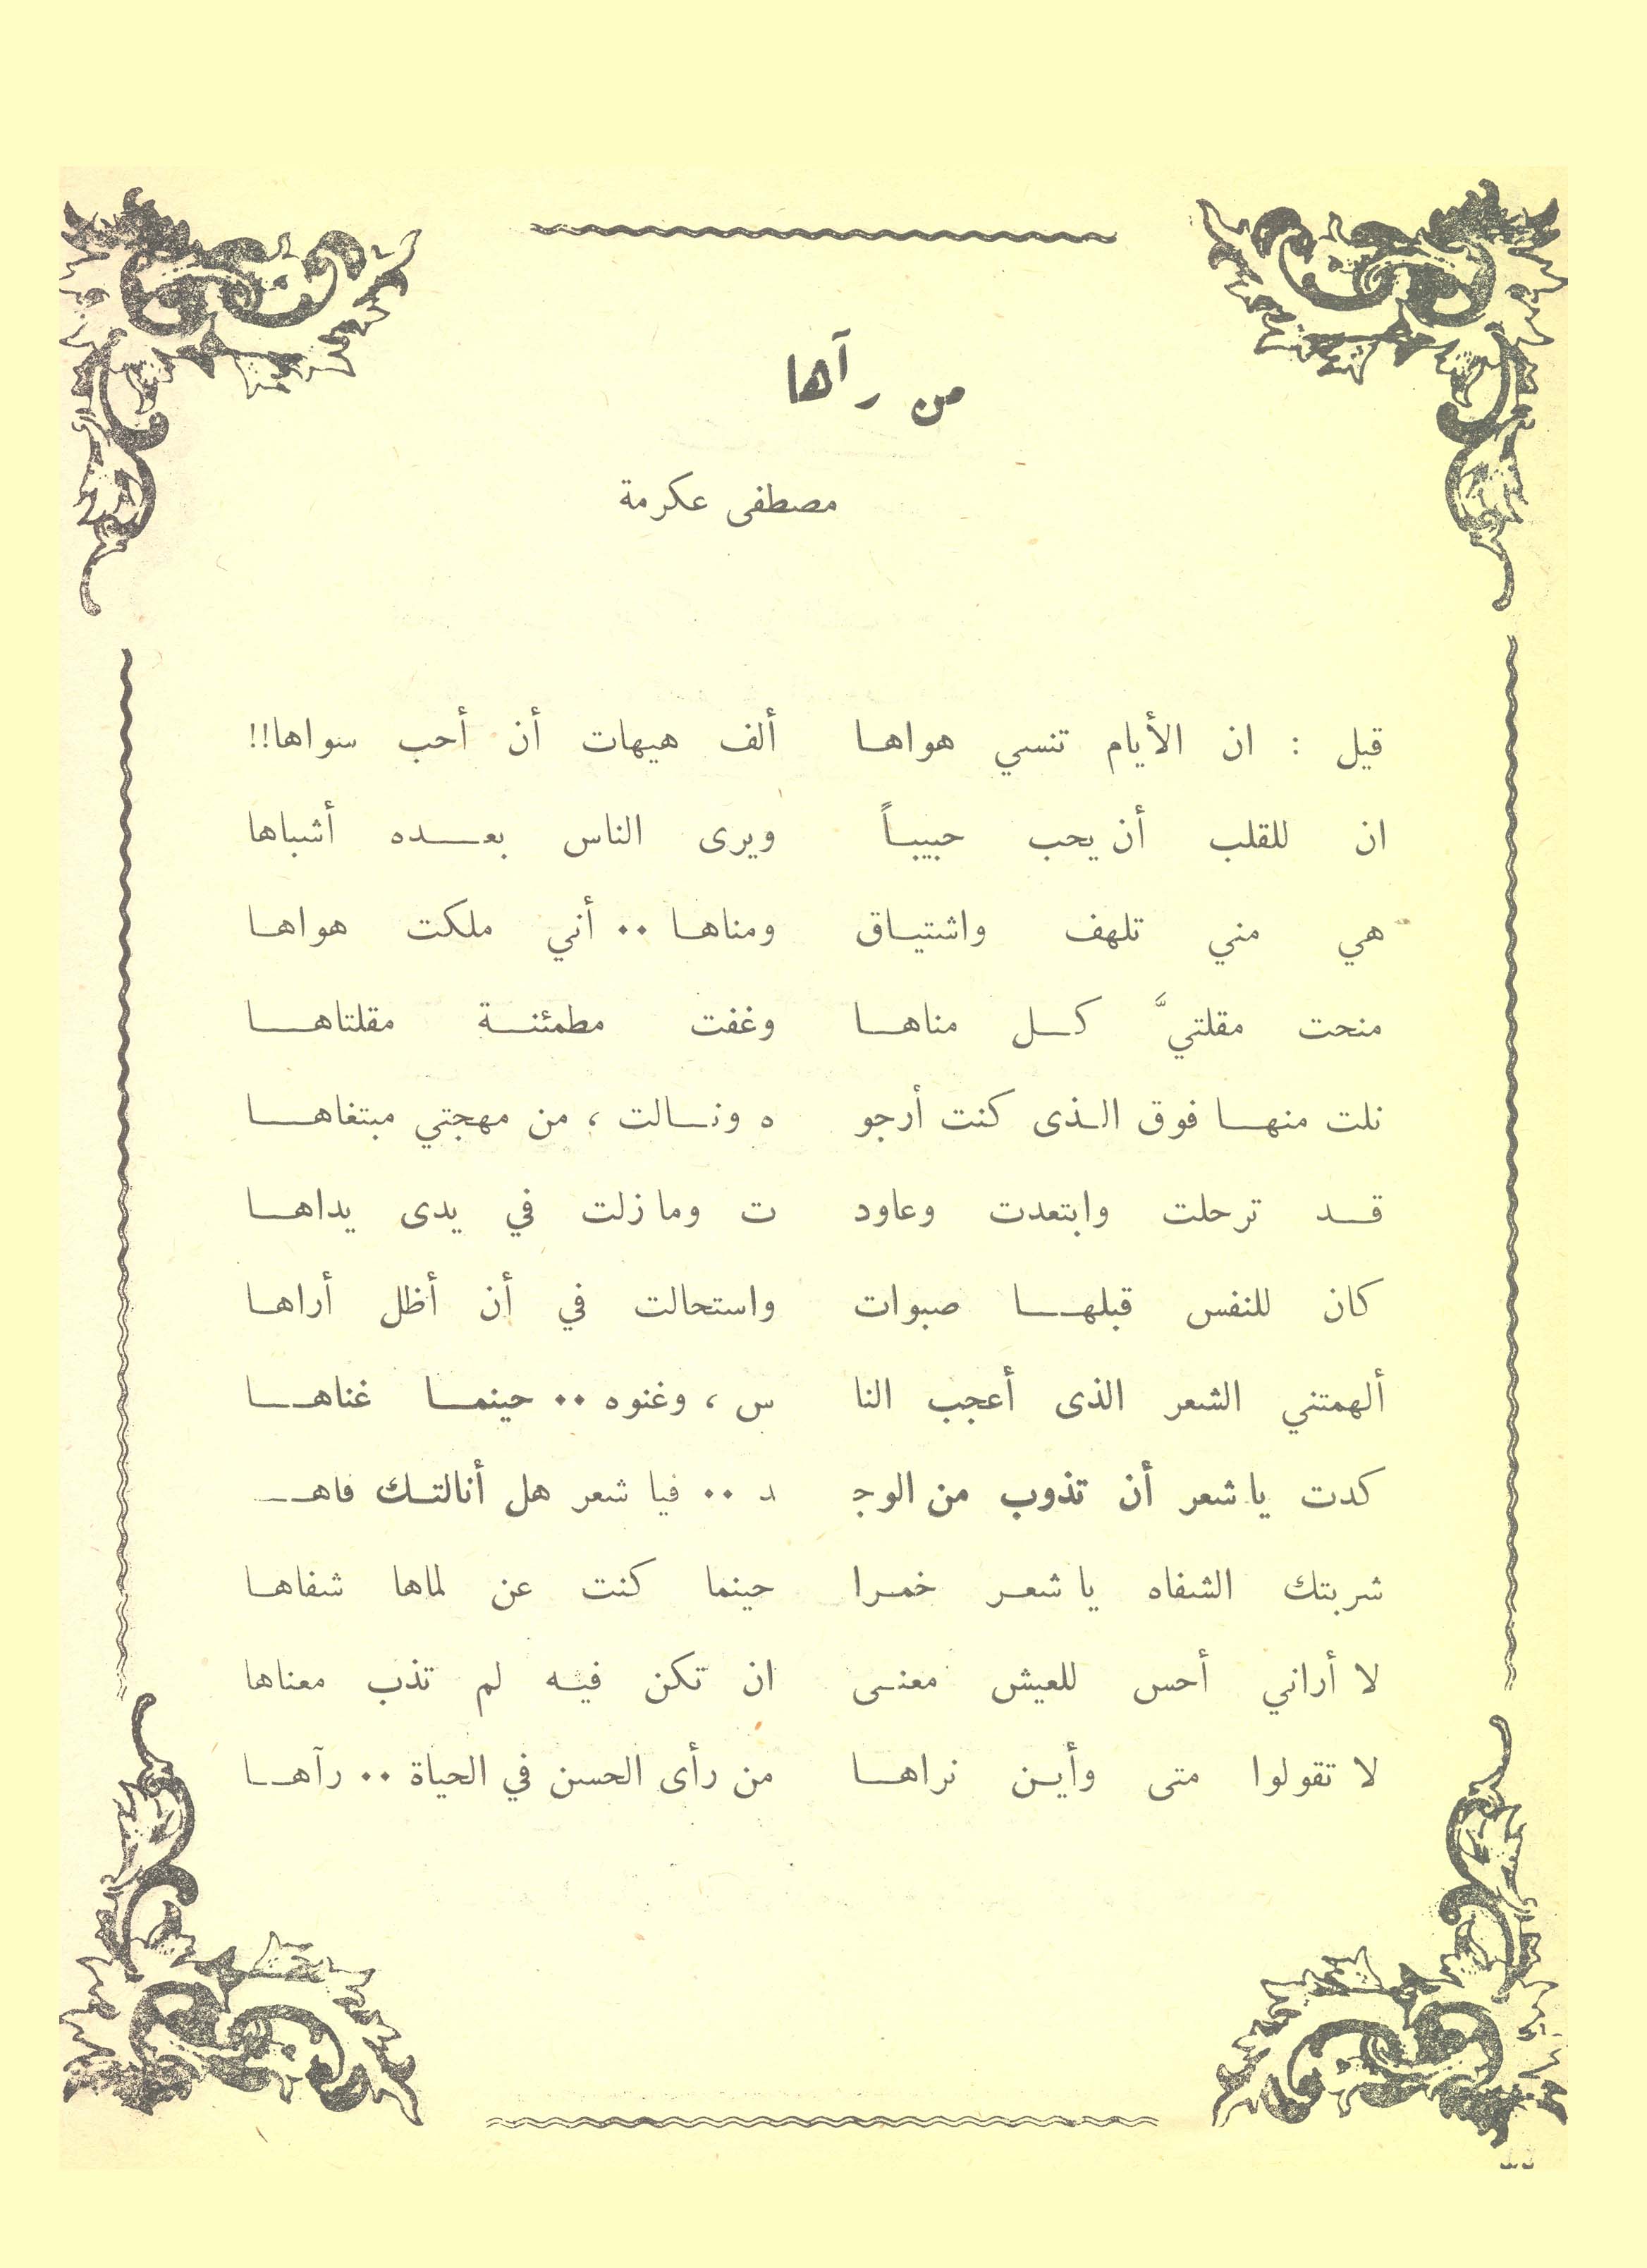 من رآها
مصطفى عكرمة
قيل : ان الأيام تنسي هواها ألف هيهات أن أحب سواها!!
ان للقلب أن يحب حبيباً ويرى الناس بعده أشباها
هي مني تلهف واشتياق ومناها .. أني ملكت هواها
منحت مقلتيَّ كل مناها وغفت مطمئنة مقلتاها
نلت منها فوق الذى كنت أرجو ه ونالت ، من مهجتي مبتغاها
قد ترحلت وابتعدت وعاود ت وما زلت في يدى يداها
كان للنفس قبلها صبوات واستحالت في أن أظل أراها
ألهمتني الشعر الذى أعجب النا س ، وغنوه .. حينما غناها
كدت يا شعر أن تذوب من الوج د .. فيا شعر هل أنالتك فاهـ
شربتك الشفاه يا شعر خمرا حينما كنت عن لماها شفاها
لا أراني أحس للعيش معنى ان تكن فيه لم تذب معناها
لا تقولوا متى وأين نراها من رأى الحسن في الحياة .. رآها